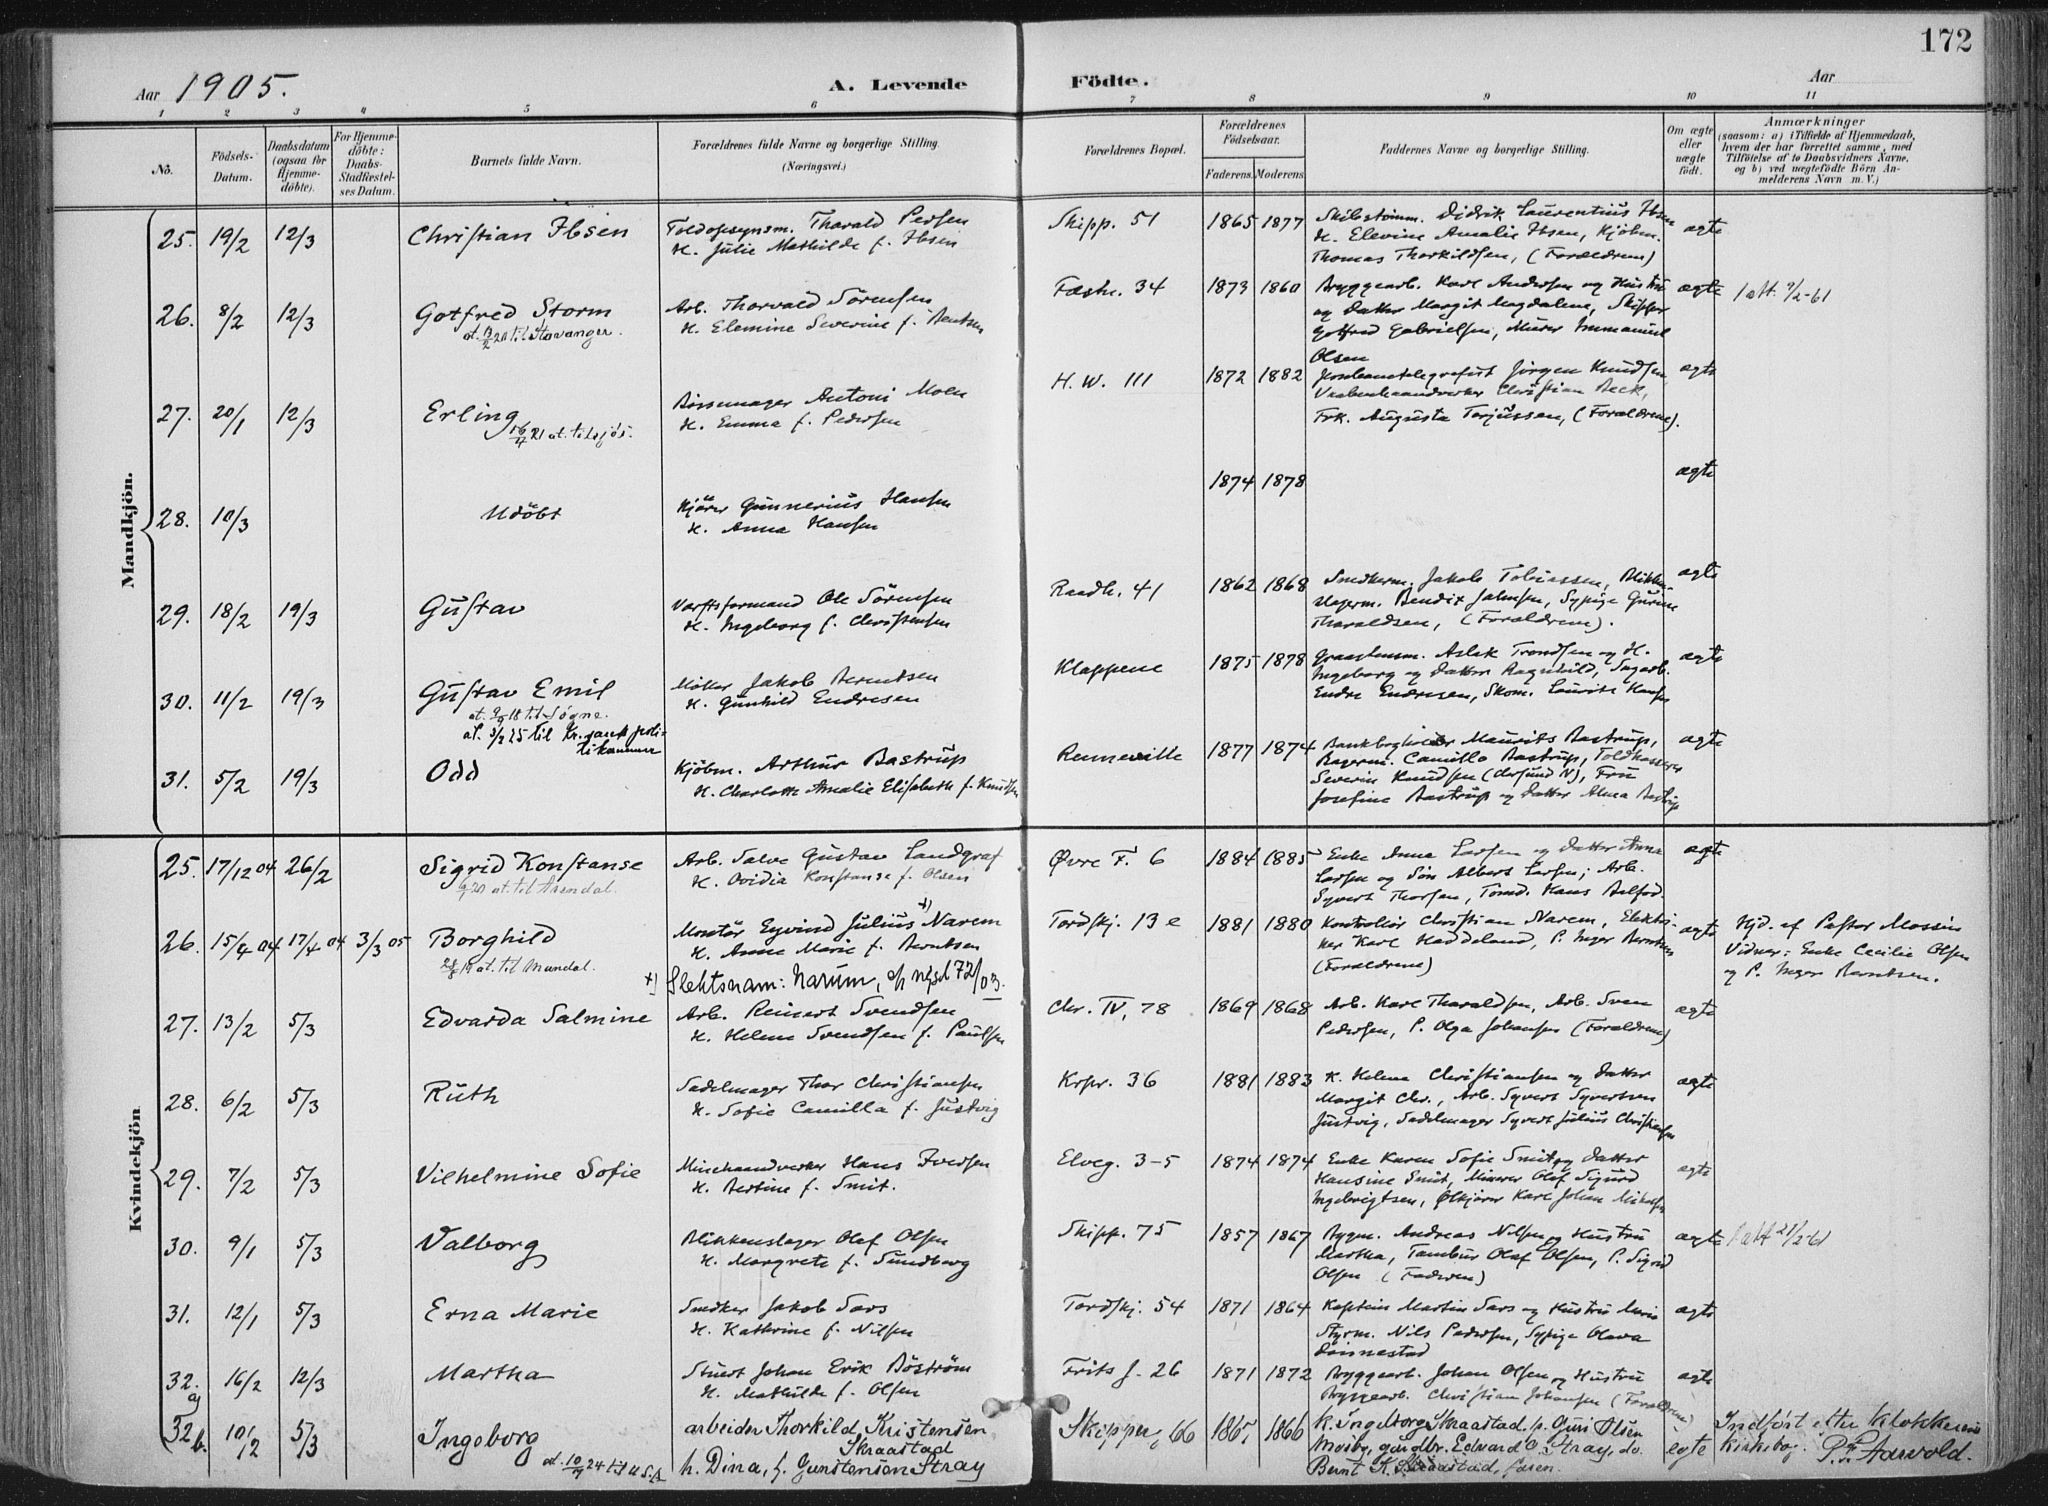 172
Aar 1905.
A. Levende Födte.
Aar
1 2 3 4 5 6 7 8 9 10 11
No.
Födsels-
Datum.
Daabsdatum
(ogsaa for
Hjemme-
döbte).
For Hjemme-
döbte:
Daabs-
Stadfæstel-
ses Datum.
Barnets fulde Navn.
Forældrenes fulde Navne og borgerlige Stilling.
(Næringsvei.)
Forældrenes Bopæl.
Forældrenes
Födselsaar.
Faderens.
Moderens.
Faddernes Navne og borgerlige Stilling.
Om ægte
eller
uægte
født.
Anmærkninger
(saasom: a) i Tilfælde af Hjemmedaab,
hvem der har forrettet samme, med
Tilföielse af to Daabsvidners Navne,
og b) ved uægtefödte Börn An-
melderens Navn m. V.)
Mandkjön.
25. 19/2 12/3 Christian Ibsen
Toldopsynsm. Tharald Pedsen
H. Julie Mathilde f. Ibsen
Skipp. 51 1865 1877
Didrik Laurentius Ibsen
H. Elevine Amalie Ibsen, Kjøbm.
Thomas Thorkildsen, (Forældrene)
ægte
26. 8/2 12/3 Gotfred Storm
20 til Stavanger.
Arb. Thorvald Sörensen
H. Elemine Severine f. Bentsen
Fæstn. 34 1873 1860
Bryggearb. Karl Andersen og Hustru
og Datter Margit Magdalene, Skipper
Gotfred Gabrielsen, Murer Immanuel
Olsen
ægte
1 att. 7/2-61
27. 20/1 12/3 Erling
16/4 21 at. til sjøs.
Börsemager Antoni Moen
H. Emma f. Pedersen
H. W. 111 1872 1882
Jørgen Knudsen,
Christian Beck,
Frk. Augusta Terjussen, (Forældrene).
ægte
28. 10/3 Udöbt
Kjörer Gunnerius Hansen
H. Anna Hansen
1874 1878
ægte
29. 18/2 19/3 Gustav
Værftsformand Ole Sörensen
H. Ingeborg f. Christensen
Raadh. 41 1862 1868
Snedkerm. Jakob Tobiassen, Blikken-
slagerm. Bendix Jahnsen, Sypige Gurine
Tharaldsen, (Forældrene).
ægte
30. 11/2 19/3 Gustav Emil
at. 9/9 18 til Søgne.
at. 3/2 25 til Kr.sand poli-
tikammer
Jakob Berntsen
H. Gunhild Endresen
Klappene 1875 1878
Aslak Trondsen og H.
Ingeborg og Datter Ragnhild, Sagarb.
Endre Endresen, Skom. Lauritz Hansen
ægte
31. 5/2 19/3 Odd
Kjöbm. Arthur Bastrup
H. Charlotte Amalie Elisabeth f. Knudsen
Renneville 1877 1874
Bankbogholder Maurits Bastrup,
Bagerm. Camillo Bastrup, Toldkasserer
Severin Knudsen (Chrsund N), Fru
Josefine Bastrup og Datter Alma Bastrup
ægte
Kvindekjön
25. 17/12 04 26/2 Sigrid Konstanse
20 at. til Arendal.
Arb. Salve Gustav Landgraf
H. Ovidia Konstanse f. Olsen
Øvre F. 6 1884 1885
Enke Anna Larsen og Datter Anna
Larsen og Sön Albert Larsen; Arb.
Syvert Thorsen, Tömd. Hans
ægte
26. 15/4 04 17/4 04 3/3 05 Borghild
19 at. til Mandal.
Montör Eyvind Julius +) Narem
H. Anne Marie f. Berntsen
+) Slektsnam: Narum, 72/03.
Tordskj. 13 e 1881 1880
Kontrollör Christian Narem, Elektri-
ker Karl Haddeland, P. Inger Berntsen
(Forældrene)
ægte
Hjd. af Pastor Mossin
Vidner: Enke Cecilie Olsen
og P. Inger Berntsen.
27. 13/2 5/3 Edvarda Salmine
Arb. Reinert Svendsen
H. Helene Svendsen f. Paulsen
Chr. IV, 78 1869 1868
Arb. Karl Tharaldsen, Arb. Sven
Pedersen, P. Olga Johansen (Forældrene)
ægte
28. 6/2 5/3 Ruth
Sadelmager Thor Christiansen
H. Sofie Camilla f. Justvig
Krpr. 36 1881 1883
K. Helene Christiansen og Datter
Margit Chr., Arb. Syvert Syvertsen
Justvig, Sadelmager Syvert Julius Christiansen
ægte
29. 7/2 5/3 Vilhelmine Sofie
Minehaandverker Hans Iversen
H. Bertine f. Smit.
Elveg. 3-5 1874 1874
Enke Karen Sofie Smit og Datter
Hansine Smit, Minerer Olaf Sigurd
Ingebrigtsen, Ølkjører Karl Johan
ægte
30. 9/1 5/3 Valborg
Blikkenslager Olaf Olsen
H. Margrete f. Sundberg
Skipp. 75 1857 1867
Bygm. Andreas Nilsen og Hustru
Martha, Tambur Olaf Olsen, P. Sigrid
Olsen (Faderen)
ægte
1 att 21/2-61
31. 12/1 5/3 Erna Marie
Snedker Jakob Sars
H. Kathrine f. Nilsen
Tordskj. 54 1871 1864
Kaptein Martin Sars og Hustru Marie
Styrm. Nils Pedersen, Sypige Olava
Dønnestad
ægte
32. a) 16/2 12/3 Martha
Stuert Johan Erik Böström
H. Mathilde f. Olsen
Frits J. 26 1871 1872
Bryggearb. Johan Olsen og Hustru
Bryggearb. Christian Johansen (Forældrene)
ægte
32 b. 10/12 5/3 Ingeborg
at. 10/9 24 til U.S.A
arbeider Thorkild Kristensen
Skraastad
h. Dina, f. Gunstensen Stray
Skipper, 66 1865, 1866
k. Ingeborg Skraastad, p. Guri Olsen
Mosby, gardbr. Edvard O. Stray, do.
Bernt K. Skraastad, faren.
ægte
Indført efter klokkerens
kirkebog. P. F. Aarvold.